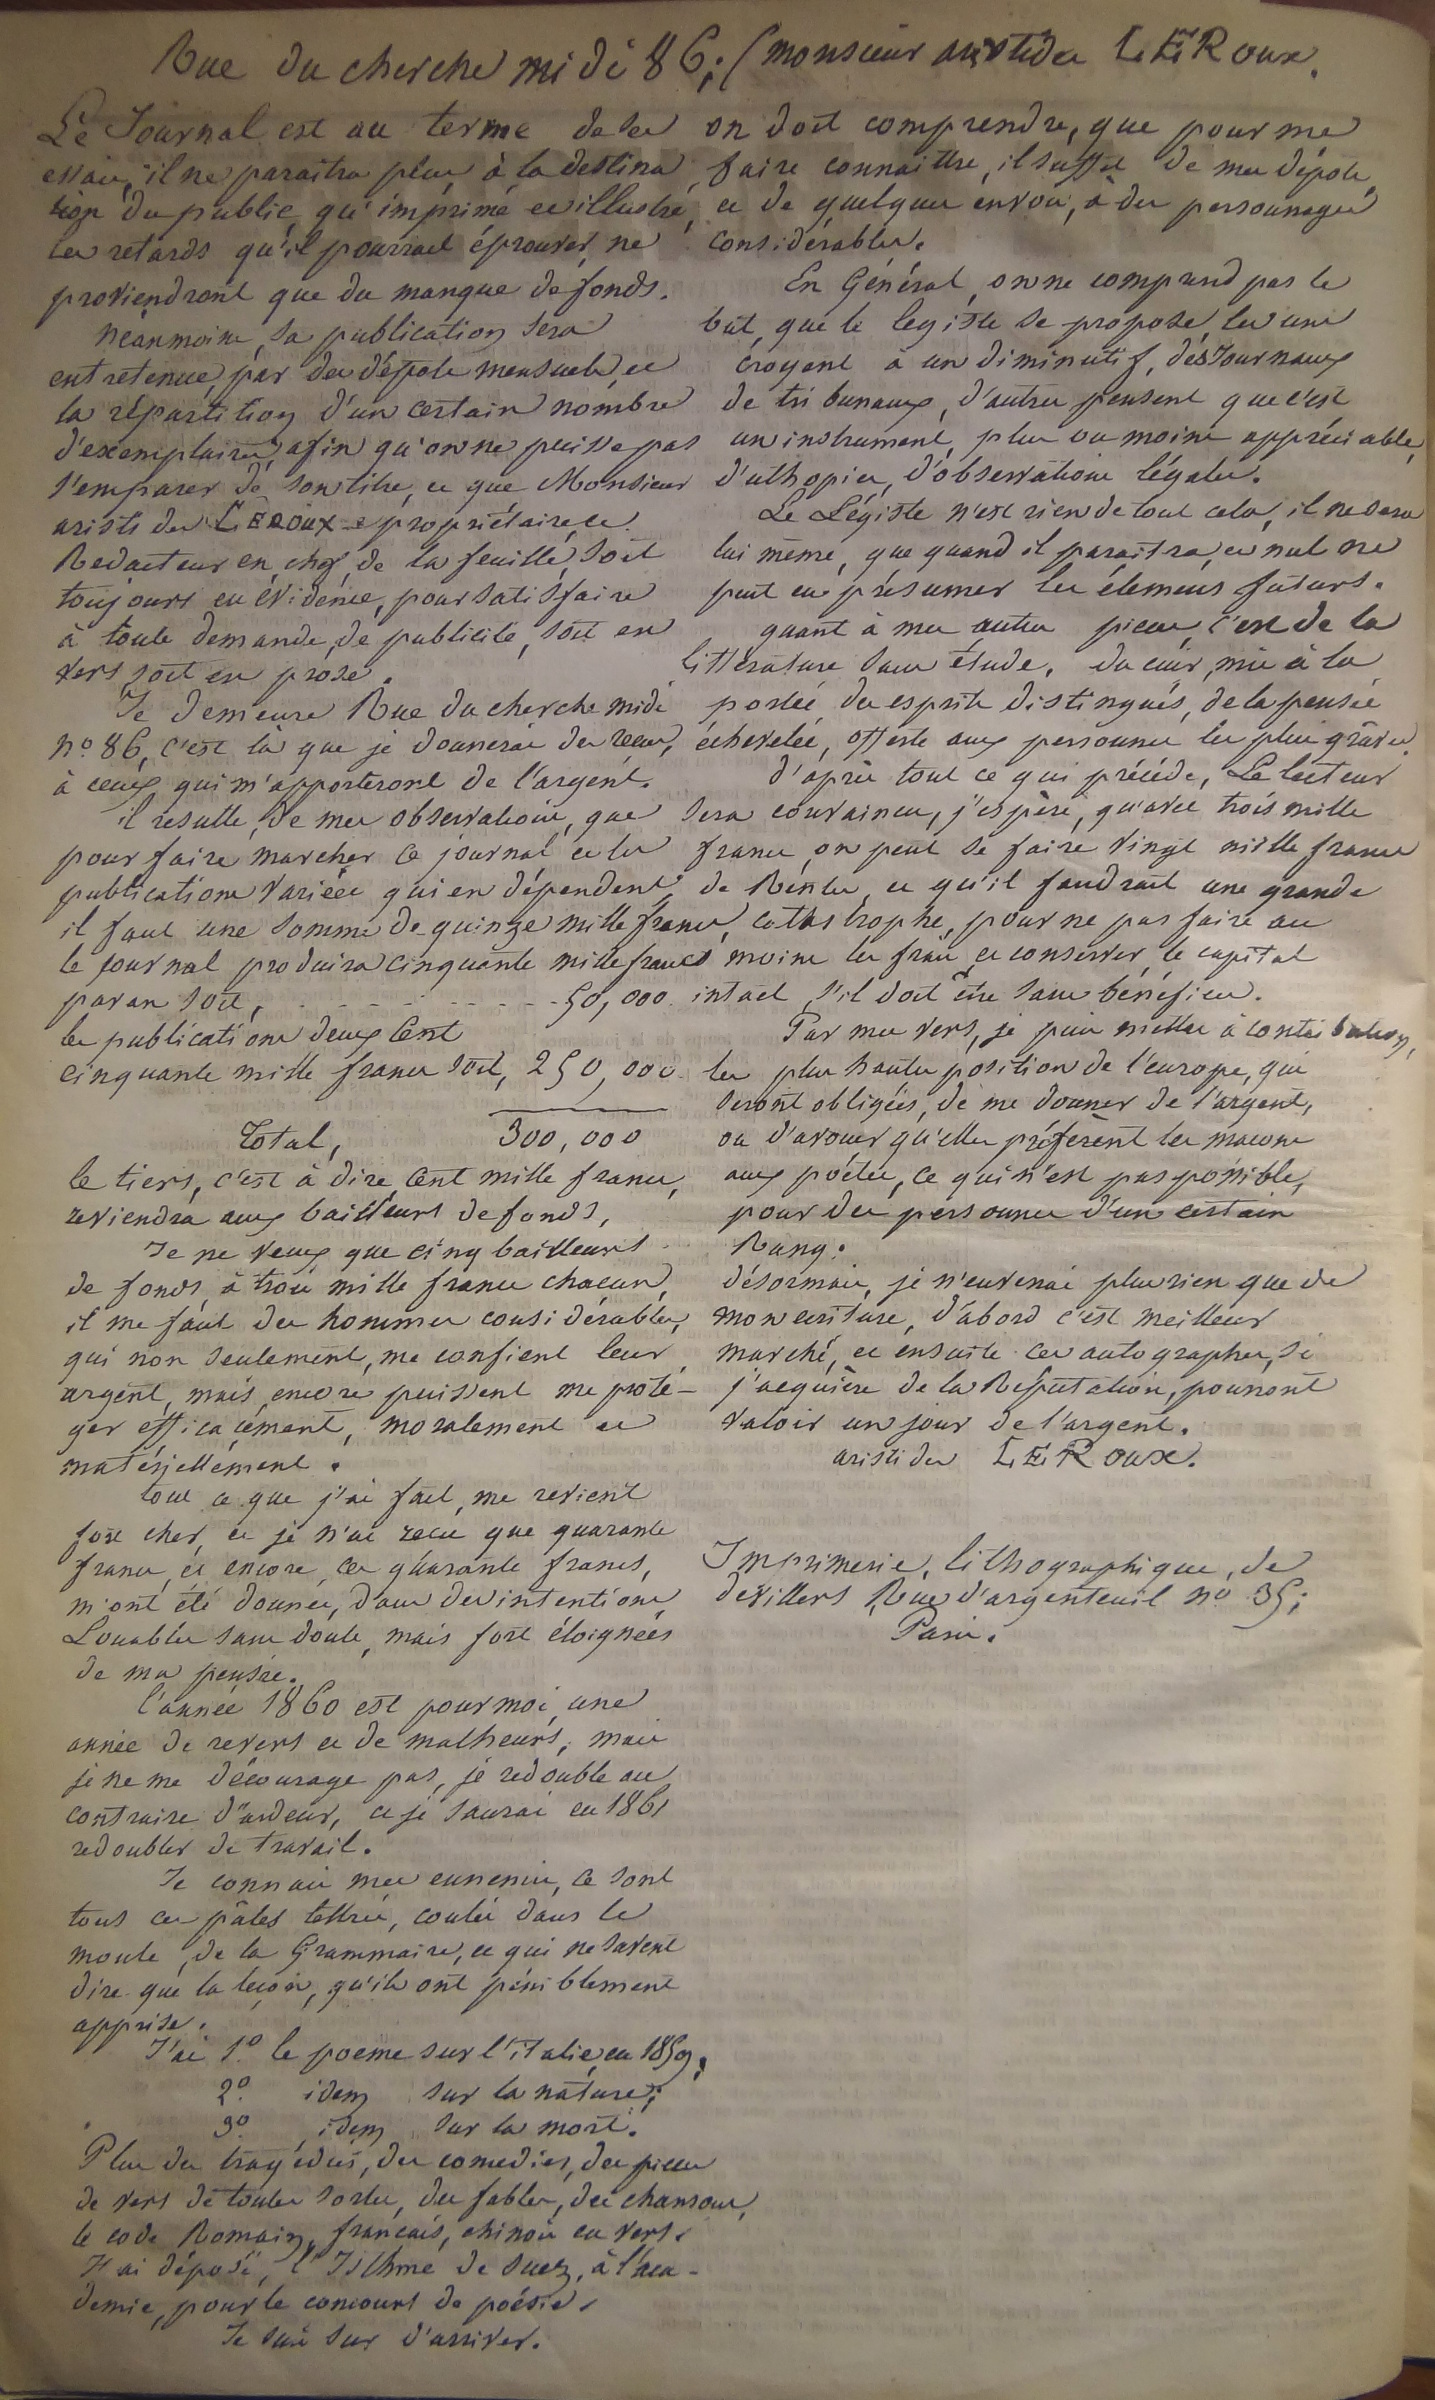 Rue du cherche midi 86; (monsieur aristides LEROUX.
Le Journal est au terme de ses
essais, il ne paraitra plus à la destina
tion du public, qu'imprimé et illustré,
les retards qu'il pourrait éprouver, ne
proviendront que du manque de fonds.
neanmoins, sa publication sera
entretenue, par des dépots mensuels, et
la répartition d'un certain nombre
d'exemplaires, afin qu'on ne puisse pas
s'emparer de son titre, et que Monsieur
aristides LEROUX propriétaire et
Redacteur en chef, de la feuille, soit
toujours en évidence, pour satisfaire
à toute demande, de publicité, soit en
vers, soit en prose.
Je demeure Rue du cherche midi
no 86, c'est là que je donnerai des recus,
à ceux, qui m'apporteront de l'argent.
il resulte, de mes observations, que
pour faire marcher ce journal et les
publications variées qui en dépendent,
il faut une somme de quinze mille francs,
le journal produira cinquante mille francs
par an soit, - - - - - - - - - - 50,000
les publications deux Cent
cinquante mille francs soit, 250,000
Total, 300,000
le tiers, c'est à dire, Cent mille francs,
reviendra aux bailleurs de fonds,
Je ne veux que cinq bailleurs
de fonds, à trois mille francs chacun,
il me faut des hommes considérables,
qui non seulement, me confient leur
argent, mais encore puissent me proté-
ger efficacement, moralement et
matériellement.
tout ce que j'ai fait, me revient
fort cher, et je n'ai recu que quarante
francs, et encore, ces quarante francs,
m'ont été donnés, dans des intentions,
Louables sans doute, mais fort éloignées
de ma pensée.
l'année 1860 est pour moi, une
année de revers et de malheurs, mais
je ne me décourage pas, je redouble au
contraire d'ardeur, et je saurai en 1861
redoubler de travail.
Je connais mes ennemis, ce sont
tous ces pâles lettrés, coulés dans le
moule, de la Grammaire, et qui ne savent
dire que la leçon, qu'ils ont péniblement
apprise.
J'ai 1o. le poeme sur l'italie, en 1859;
2o. idem sur la nature;
3o. idem sur la mort.
Plus des tragédies, des comedies, des pieces
de vers de toutes sortes, des fables, des chansons,
le code Romain, francais, chinois en vers.
J'ai déposé, l'Isthme de Suez, à l'aca-
demie, pour le concours de poésie.
Je suis sur d'arriver.
on doit comprendre, que pour me
faire connaitre, il suffit de mes dépots,
et de quelques envois, à des personnages
considérables.
En Général, on ne comprend pas le
but, que le legiste se propose, les uns
croyent à un diminutif, des Journaux
de tribunaux, d'autres pensent que c'est
un instrument, plus ou moins appréciable,
d'uthopies, d'observations légales.
Le Légiste n'est rien de tout cela, il ne sera
lui même, que quand il paraitra, et nul ne
peut en présumer les élemens futurs.
quant à mes autres pieces, c'est de la
littérature sans étude, du cuir, mis à la
portée des esprits distingués, de la pensée
échevelée, offerte aux personnes les plus grâves.
d'après tout ce qui précéde, Le lecteur
sera convaincu, j'espère, qu'avec trois mille
francs, on peut se faire vingt mille francs
de Rentes, et qu'il faudrait une grande
cathastrophe, pour ne pas faire au
moins les frais, et conserver le capital
intact, s'il doit être sans bénéfices.
Par mes vers, je puis mettre à contribution,
les plus hautes position de l'europe, qui
seront obligées, de me donner de l'argent,
ou d'avouer qu'elles préfèrent les macons
aux poétes, ce qui n'est pas possible,
pour des personnes d'un certain
Rang.
désormais, je n'enverrai plus rien que de
mon ecriture, d'abord c'est meilleur
marché, et ensuite ces autographes, si
j'acquière de la Réputation, pourront
valoir un jour de l'argent.
aristides LEROUX.
Imprimerie, lithographique, de
devillers Rue d'argenteuil no 35;
Paris.